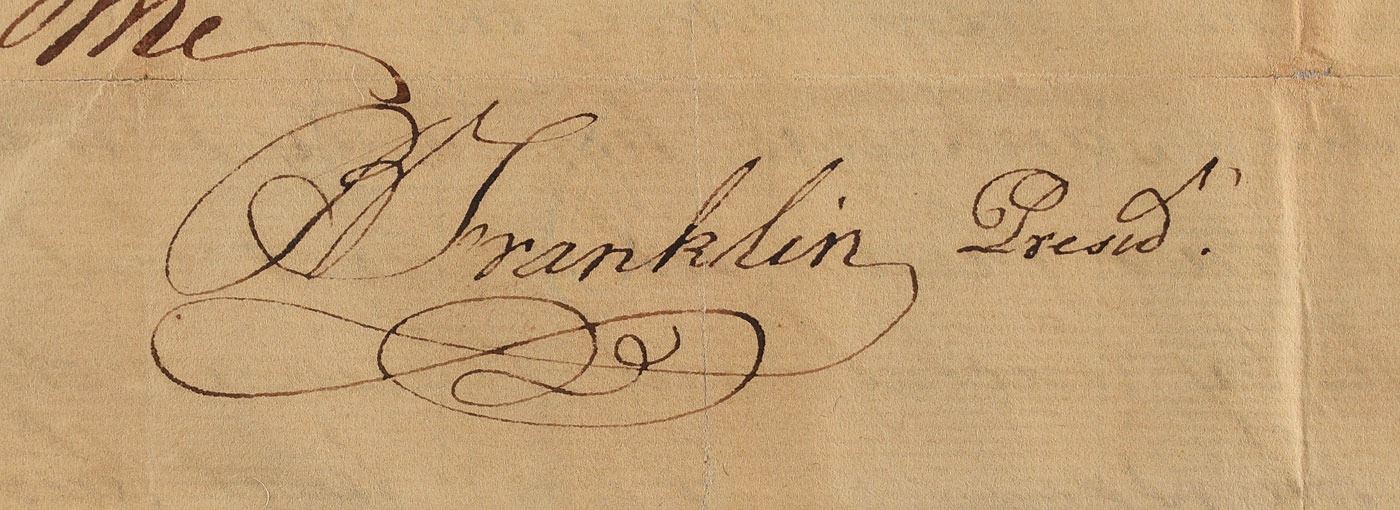 me
B Franklin Presidt.